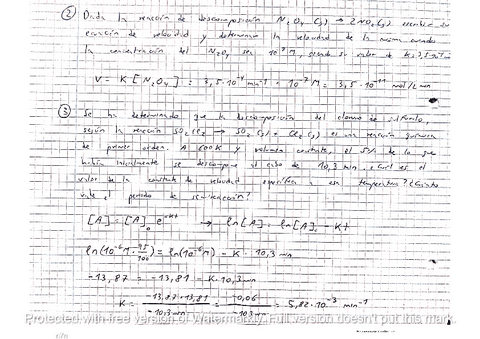 ② Dada la reacción de descomposición N₂O₄ (g) → 2NO₂(g) escribir su
ecuación de velocidad y determinar la velocidad de la misma cuando
la concentración del N₂O₄ sea 10⁻⁷ M, siendo su valor de k
V = K [N₂O₄] = 3,5·10⁻⁴ min⁻¹ · 10⁻⁷ M = 3,5·10⁻¹¹ mol/L min
③ Se ha determinado que la descomposición del cloruro de sulfurilo,
según la reacción SO₂Cl₂ → SO₂(g) + Cl₂(g) es una reacción química
de primer orden. A 600K y volumen constante, el 5% de lo que
había inicialmente se descompone al cabo de 10,3 min. ¿Cuál es el
valor de la constante de velocidad específica a esa temperatura? ¿Cuánto
vale el periodo de semireacción?
[A] = [A]₀ e⁻ᴷᵗ → ln[A] = ln[A]₀ - Kt
ln(10⁻⁶M · 95/100) = ln(10⁻⁶M) - K · 10,3 min
-13,87 = -13,81 - K·10,3 min
K = -13,87+13,81 / -10,3 min = -0,06 / -10,3 min = 5,82·10⁻³ min⁻¹
Protected with free version of Watermarkly. Full version doesn't put this mark.